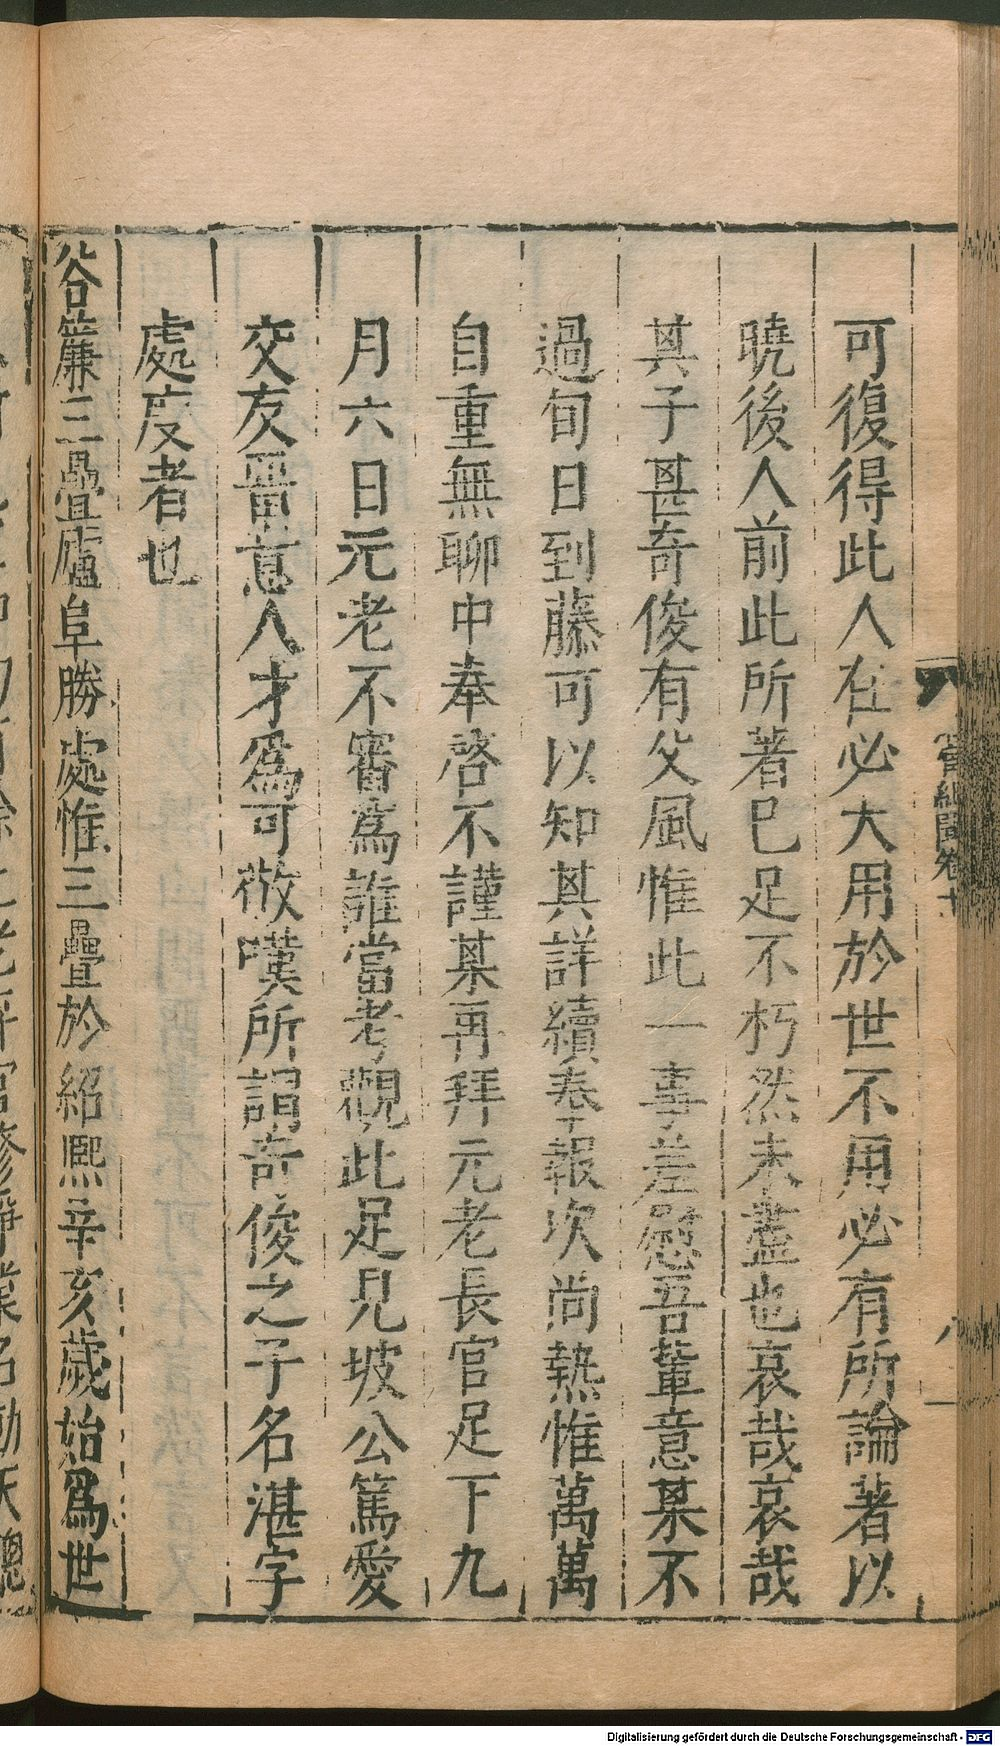 可復得此人在必大用於世不用必有所論著以
曉後人前此所著已足不朽然未盡也哀哉哀哉
其子甚奇俊有父風惟此一事差慰吾輩意某不
過旬日到藤可以知其詳續奉報次尚熱惟萬萬
自重無聊中奉啓不謹某再拜元老長官足下九
月六日元老不審爲誰當考觀此足見坡公篤愛
交友畱意人才爲可敬嘆所謂奇俊之子名湛字
處度者也
谷簾三疊廬阜勝處惟三疊於紹熙辛亥歲始爲世
卷十
Digitalisierung gefördert durch die Deutsche Forschungsgemeinschaft - DFG